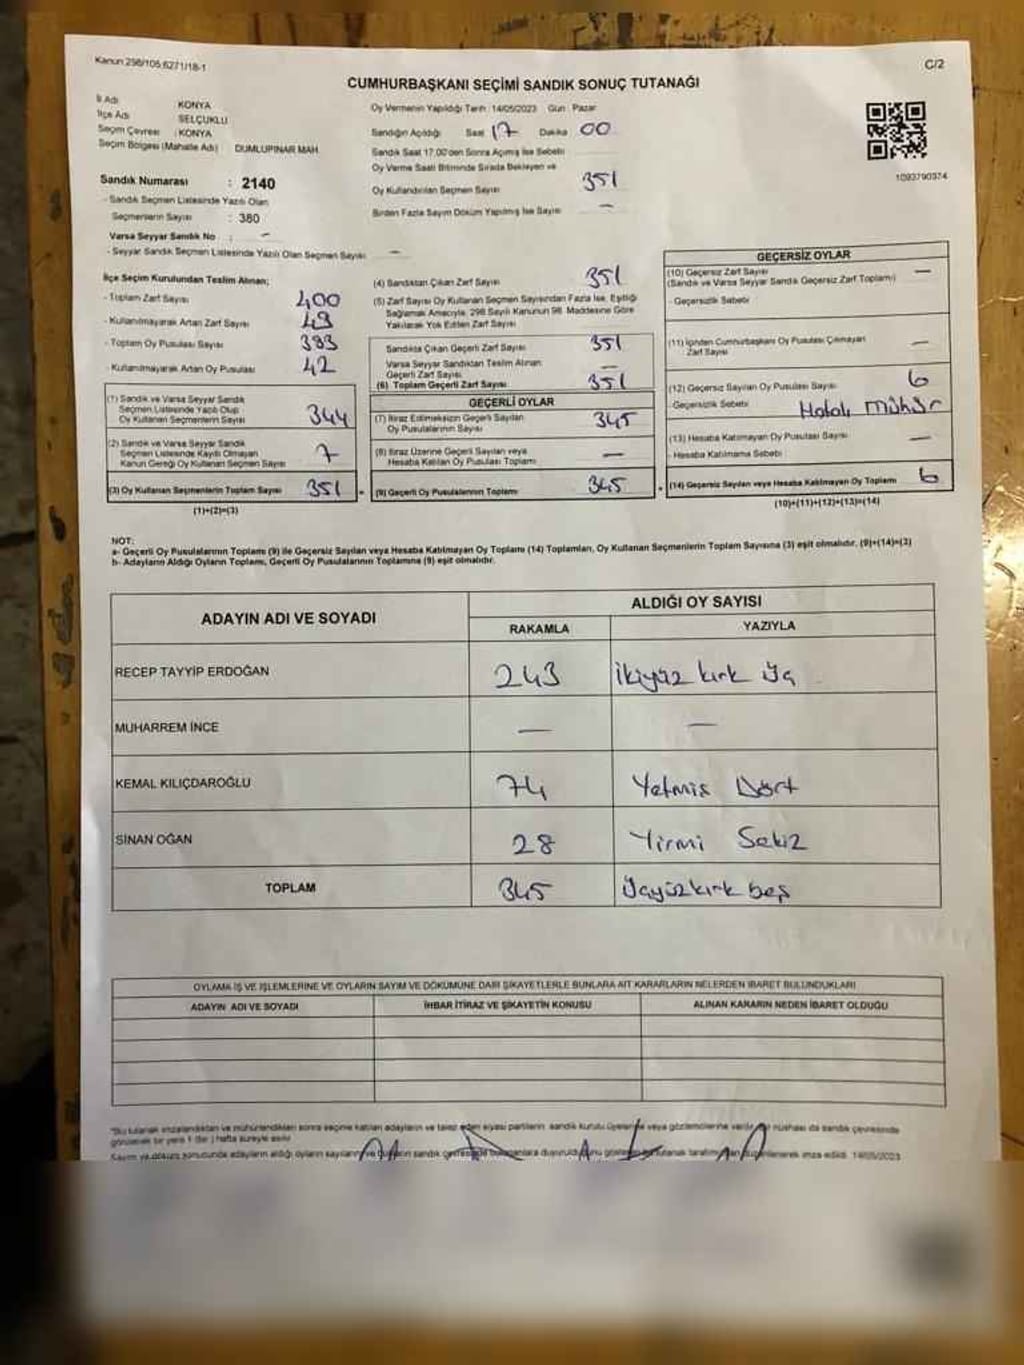 Kanun 298/105;6271/18-1
C/2
CUMHURBAŞKANI SEÇİMİ SANDIK SONUÇ TUTANAĞI
İl Adı KONYA
İlçe Adı SELÇUKLU
Seçim Çevresi : KONYA
Seçim Bölgesi (Mahalle Adı) DUMLUPINAR MAH.
Sandık Numarası : 2140
- Sandık Seçmen Listesinde Yazılı Olan
Seçmenlerin Sayısı : 380
Varsa Seyyar Sandık No : -
- Seyyar Sandık Seçmen Listesinde Yazılı Olan Seçmen Sayısı -
Oy Vermenin Yapıldığı Tarih 14/05/2023 Gün Pazar
Sandığın Açıldığı Saat 17 Dakika 00
Sandık Saat 17.00'den Sonra Açılmış İse Sebebi
Oy Verme Saati Bitiminde Sırada Bekleyen ve
Oy Kullandırılan Seçmen Sayısı 351
Birden Fazla Sayım Döküm Yapılmış İse Sayısı -
1093790374
İlçe Seçim Kurulundan Teslim Alınan;
- Toplam Zarf Sayısı 400
- Kullanılmayarak Artan Zarf Sayısı 49
- Toplam Oy Pusulası Sayısı 393
- Kullanılmayarak Artan Oy Pusulası 42
(1) Sandık ve Varsa Seyyar Sandık
Seçmen Listesinde Yazılı Olup
Oy Kullanan Seçmenlerin Sayısı 344
(2) Sandık ve Varsa Seyyar Sandık
Seçmen Listesinde Kayıtlı Olmayan
Kanun Gereği Oy Kullanan Seçmen Sayısı 7
(3) Oy Kullanan Seçmenlerin Toplam Sayısı 351
(1)+(2)=(3)
(4) Sandıktan Çıkan Zarf Sayısı 351
(5) Zarf Sayısı Oy Kullanan Seçmen Sayısından Fazla İse, Eşitliği
Sağlamak Amacıyla, 298 Sayılı Kanunun 98. Maddesine Göre
Yakılarak Yok Edilen Zarf Sayısı
Sandıkta Çıkan Geçerli Zarf Sayısı 351
Varsa Seyyar Sandıktan Teslim Alınan
Geçerli Zarf Sayısı -
(6) Toplam Geçerli Zarf Sayısı 351
GEÇERLİ OYLAR
(7) İtiraz Edilmeksizin Geçerli Sayılan
Oy Pusulalarının Sayısı 345
(8) İtiraz Üzerine Geçerli Sayılan veya
Hesaba Katılan Oy Pusulası Toplamı -
(9) Geçerli Oy Pusulalarının Toplamı 345
GEÇERSİZ OYLAR
(10) Geçersiz Zarf Sayısı -
(Sandık ve Varsa Seyyar Sandık Geçersiz Zarf Toplamı)
- Geçersizlik Sebebi
(11) İçinden Cumhurbaşkanı Oy Pusulası Çıkmayan
Zarf Sayısı -
(12) Geçersiz Sayılan Oy Pusulası Sayısı 6
Geçersizlik Sebebi Hatalı Mühür
(13) Hesaba Katılmayan Oy Pusulası Sayısı -
- Hesaba Katılmama Sebebi
(14) Geçersiz Sayılan veya Hesaba Katılmayan Oy Toplamı 6
(10)+(11)+(12)+(13)=(14)
NOT:
a- Geçerli Oy Pusulalarının Toplamı (9) ile Geçersiz Sayılan veya Hesaba Katılmayan Oy Toplamı (14) Toplamları, Oy Kullanan Seçmenlerin Toplam Sayısına (3) eşit olmalıdır. (9)+(14)=(3)
b- Adayların Aldığı Oyların Toplamı, Geçerli Oy Pusulalarının Toplamına (9) eşit olmalıdır.
ADAYIN ADI VE SOYADI ALDIĞI OY SAYISI
RAKAMLA YAZIYLA
RECEP TAYYİP ERDOĞAN 243 İkiyüz kırk üç
MUHARREM İNCE - -
KEMAL KILIÇDAROĞLU 74 Yetmiş Dört
SİNAN OĞAN 28 Yirmi Sekiz
TOPLAM 345 Üçyüzkırk beş
OYLAMA İŞ VE İŞLEMLERİNE VE OYLARIN SAYIM VE DÖKÜMÜNE DAİR ŞİKAYETLERLE BUNLARA AİT KARARLARIN NELERDEN İBARET BULUNDUKLARI
ADAYIN ADI VE SOYADI İHBAR İTİRAZ VE ŞİKAYETİN KONUSU ALINAN KARARIN NEDEN İBARET OLDUĞU
*Bu tutanak imzalandıktan ve mühürlendikten sonra seçime katılan adayların ve talep eden siyasi partilerin sandık kurulu üyelerine veya gözlemcilerine verilir. Bir nüshası da sandık çevresinde
görülecek bir yere 1 (bir) hafta süreyle asılır
Sayım ve döküm sonucunda adayların aldığı oyların sayılarını ve sandık çevresinde tutanak 14/05/2023